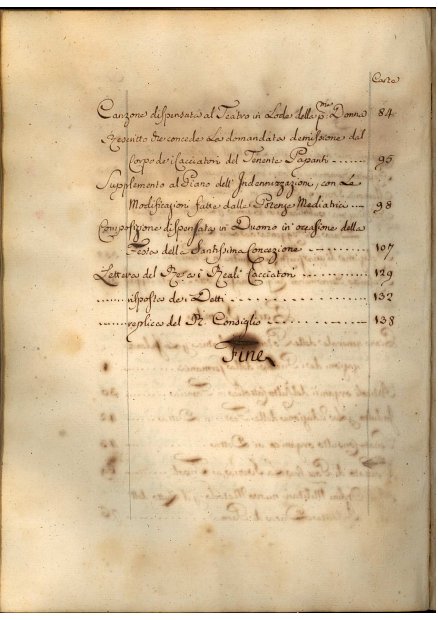 Carte
Canzone dispensata al Teatro in Lode della p.ma Donna 84
Rescritto che concede La domandata demissione dal
Corpo de i Cacciatori del Tenente Papanti 95
Supplemento al Piano dell' Indennizzazioni, con Le
Modificazioni fatte dalle Potenze Mediatrici 98
Composizione dispensata in Duomo in occasione della
Festa della Santissima Concezione 107
Lettera del Re a i Reali Cacciatori 129
risposta de i Detti 132
replica del R. Consiglio 138
Fine